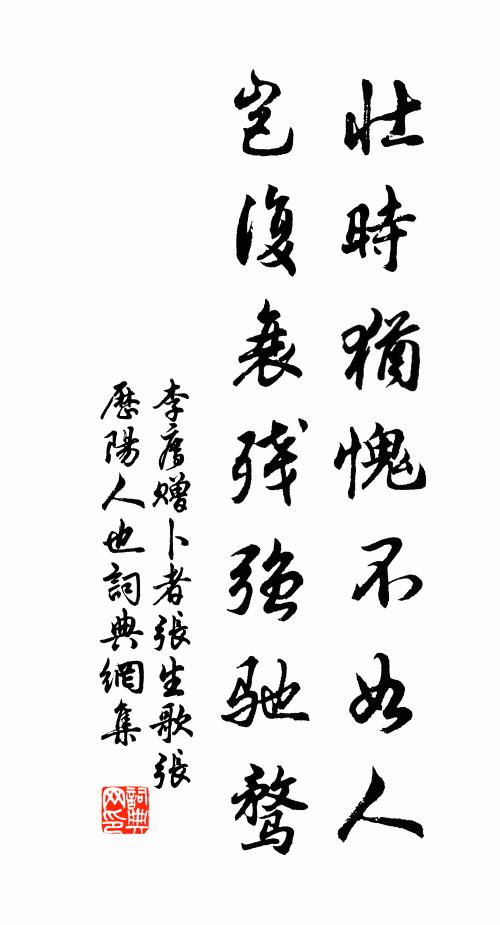 壯時猶愧不如人
豈復衰残強馳騖
李廌贈卜者張生歌張
歷陽人也詞典網集
詞典网印